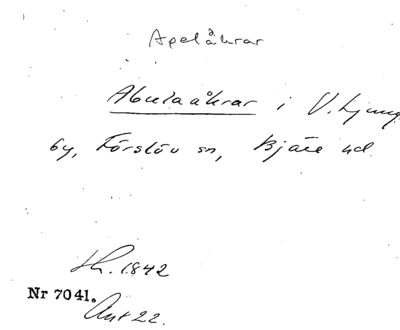 Apelåkrar
Abulaåkrar i V. Ljung
by, Förslöv sn, Bjäre hd.
Sk. 1842
Nr 7041.
Akt 22.